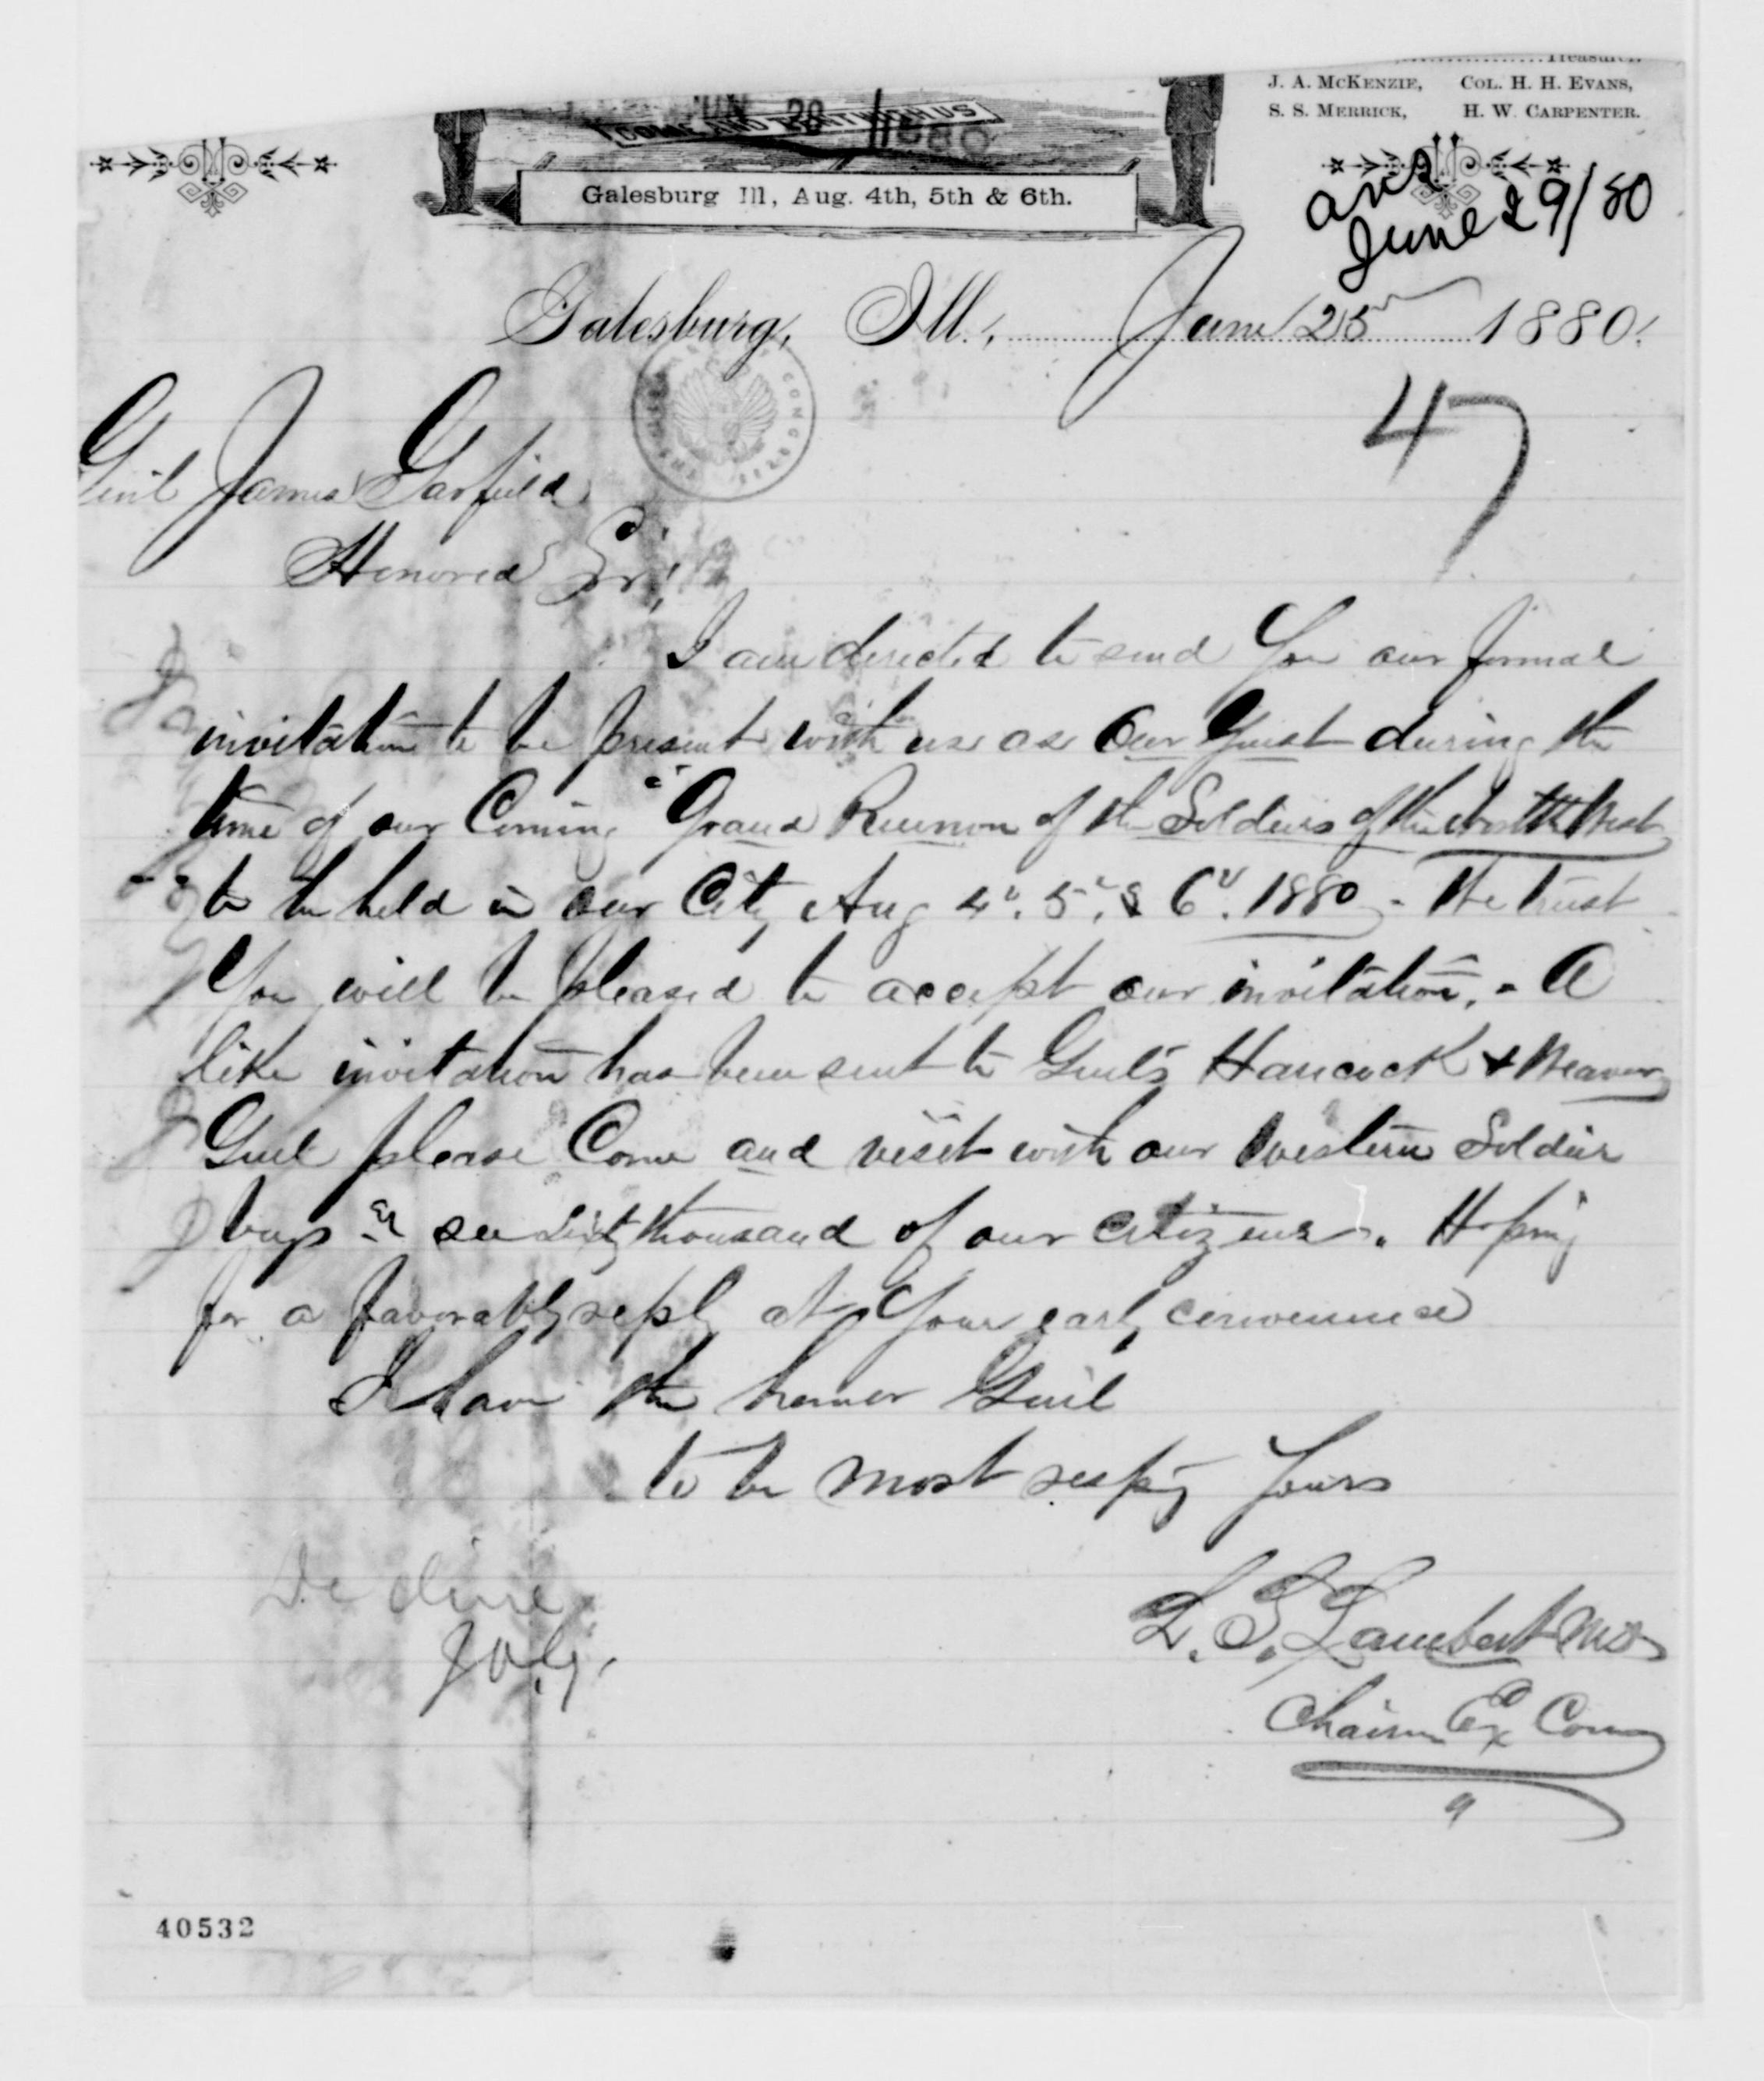 Treasurer.
J. A. McKenzie, Col. H. H. Evans,
S. S. Merrick, H. W. Carpenter.
JUN 28 1880
COME AND TENT WITH US
Galesburg Ill, Aug. 4th, 5th & 6th.
ans
June 29/80
Galesburg, Ill., June 25" 1880.
47
Genl James Garfield
Honored Sir;
I am directed to send You our formal
invitation to be present with us as Our Guest during the
time of our Coming "Grand Reunion of the Soldiers of the North West
to be held in our City Aug 4". 5". & 6". 1880 - We trust
You will be pleased to accept our invitation. - A
like invitation has been sent to Genls Hancock & Weaver
Genl please Come and visit with our Western Soldier
boys & see Sixty thousand of our citizens. Hoping
for a favorable reply at Your early convenience
I have the honor Genl
to be most respy Yours
L. S. Lambert MD
Chairm Ex Com
Decline
J.A.G.
9
40532